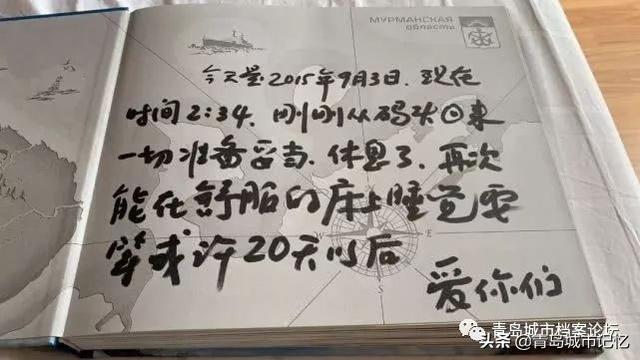 МУРМАНСКАЯ
область
今天是2015年9月3日.现在
时间2:34.刚刚从码头回来
一切准备妥当.休息了.再次
能在舒服的床上睡觉要
等或许20天以后
爱你们
E
S
青岛城市档案论坛
头条@青岛城市记忆